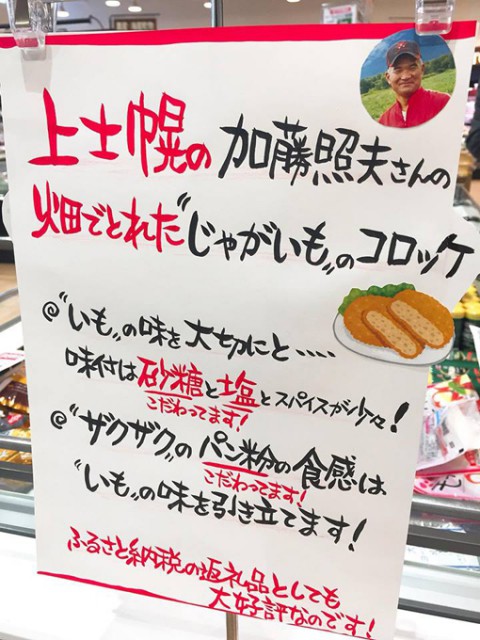 上士幌の加藤照夫さんの
畑でとれた"じゃがいも"のコロッケ
@"いも"の味を大切にと・・・・・
味付は砂糖と塩とスパイスが少々!
こだわってます!
@"ザクザク"のパン粉の食感は
こだわってます!
"いも"の味を引き立てます!
ふるさと納税の返礼品としても
大好評なのです!